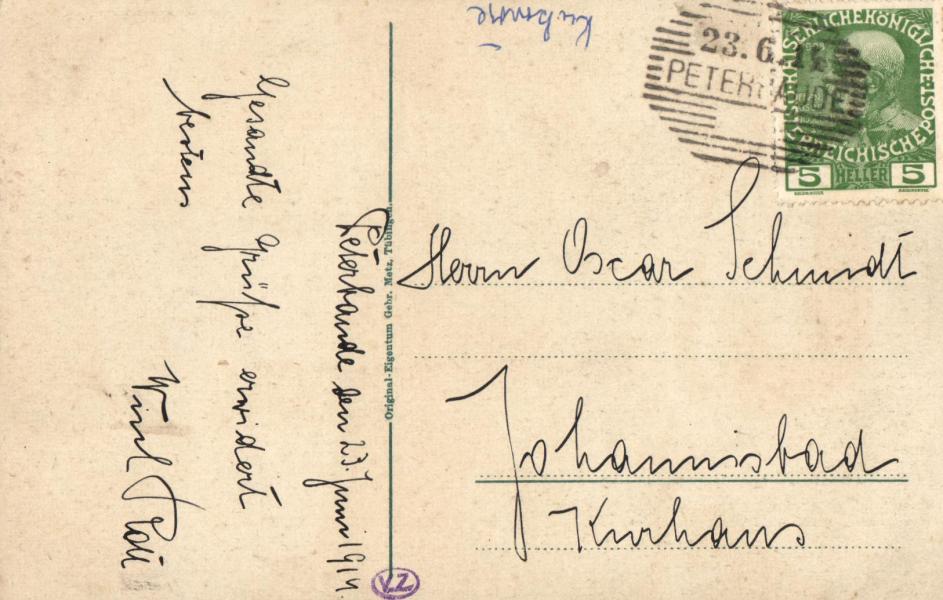 23.6.14
PETERBAUDE
KAISERLICHE KÖNIGLICHE
ÖSTERREICHISCHE POST
5 HELLER 5
Herrn Oscar Schmidt
Johannisbad
Kurhaus
Peterbaude den 23. Juni 1914.
Gesandte Grüße erwidert
bestens
Original-Eigentum Gebr. Metz, Tübingen.
V.Z.